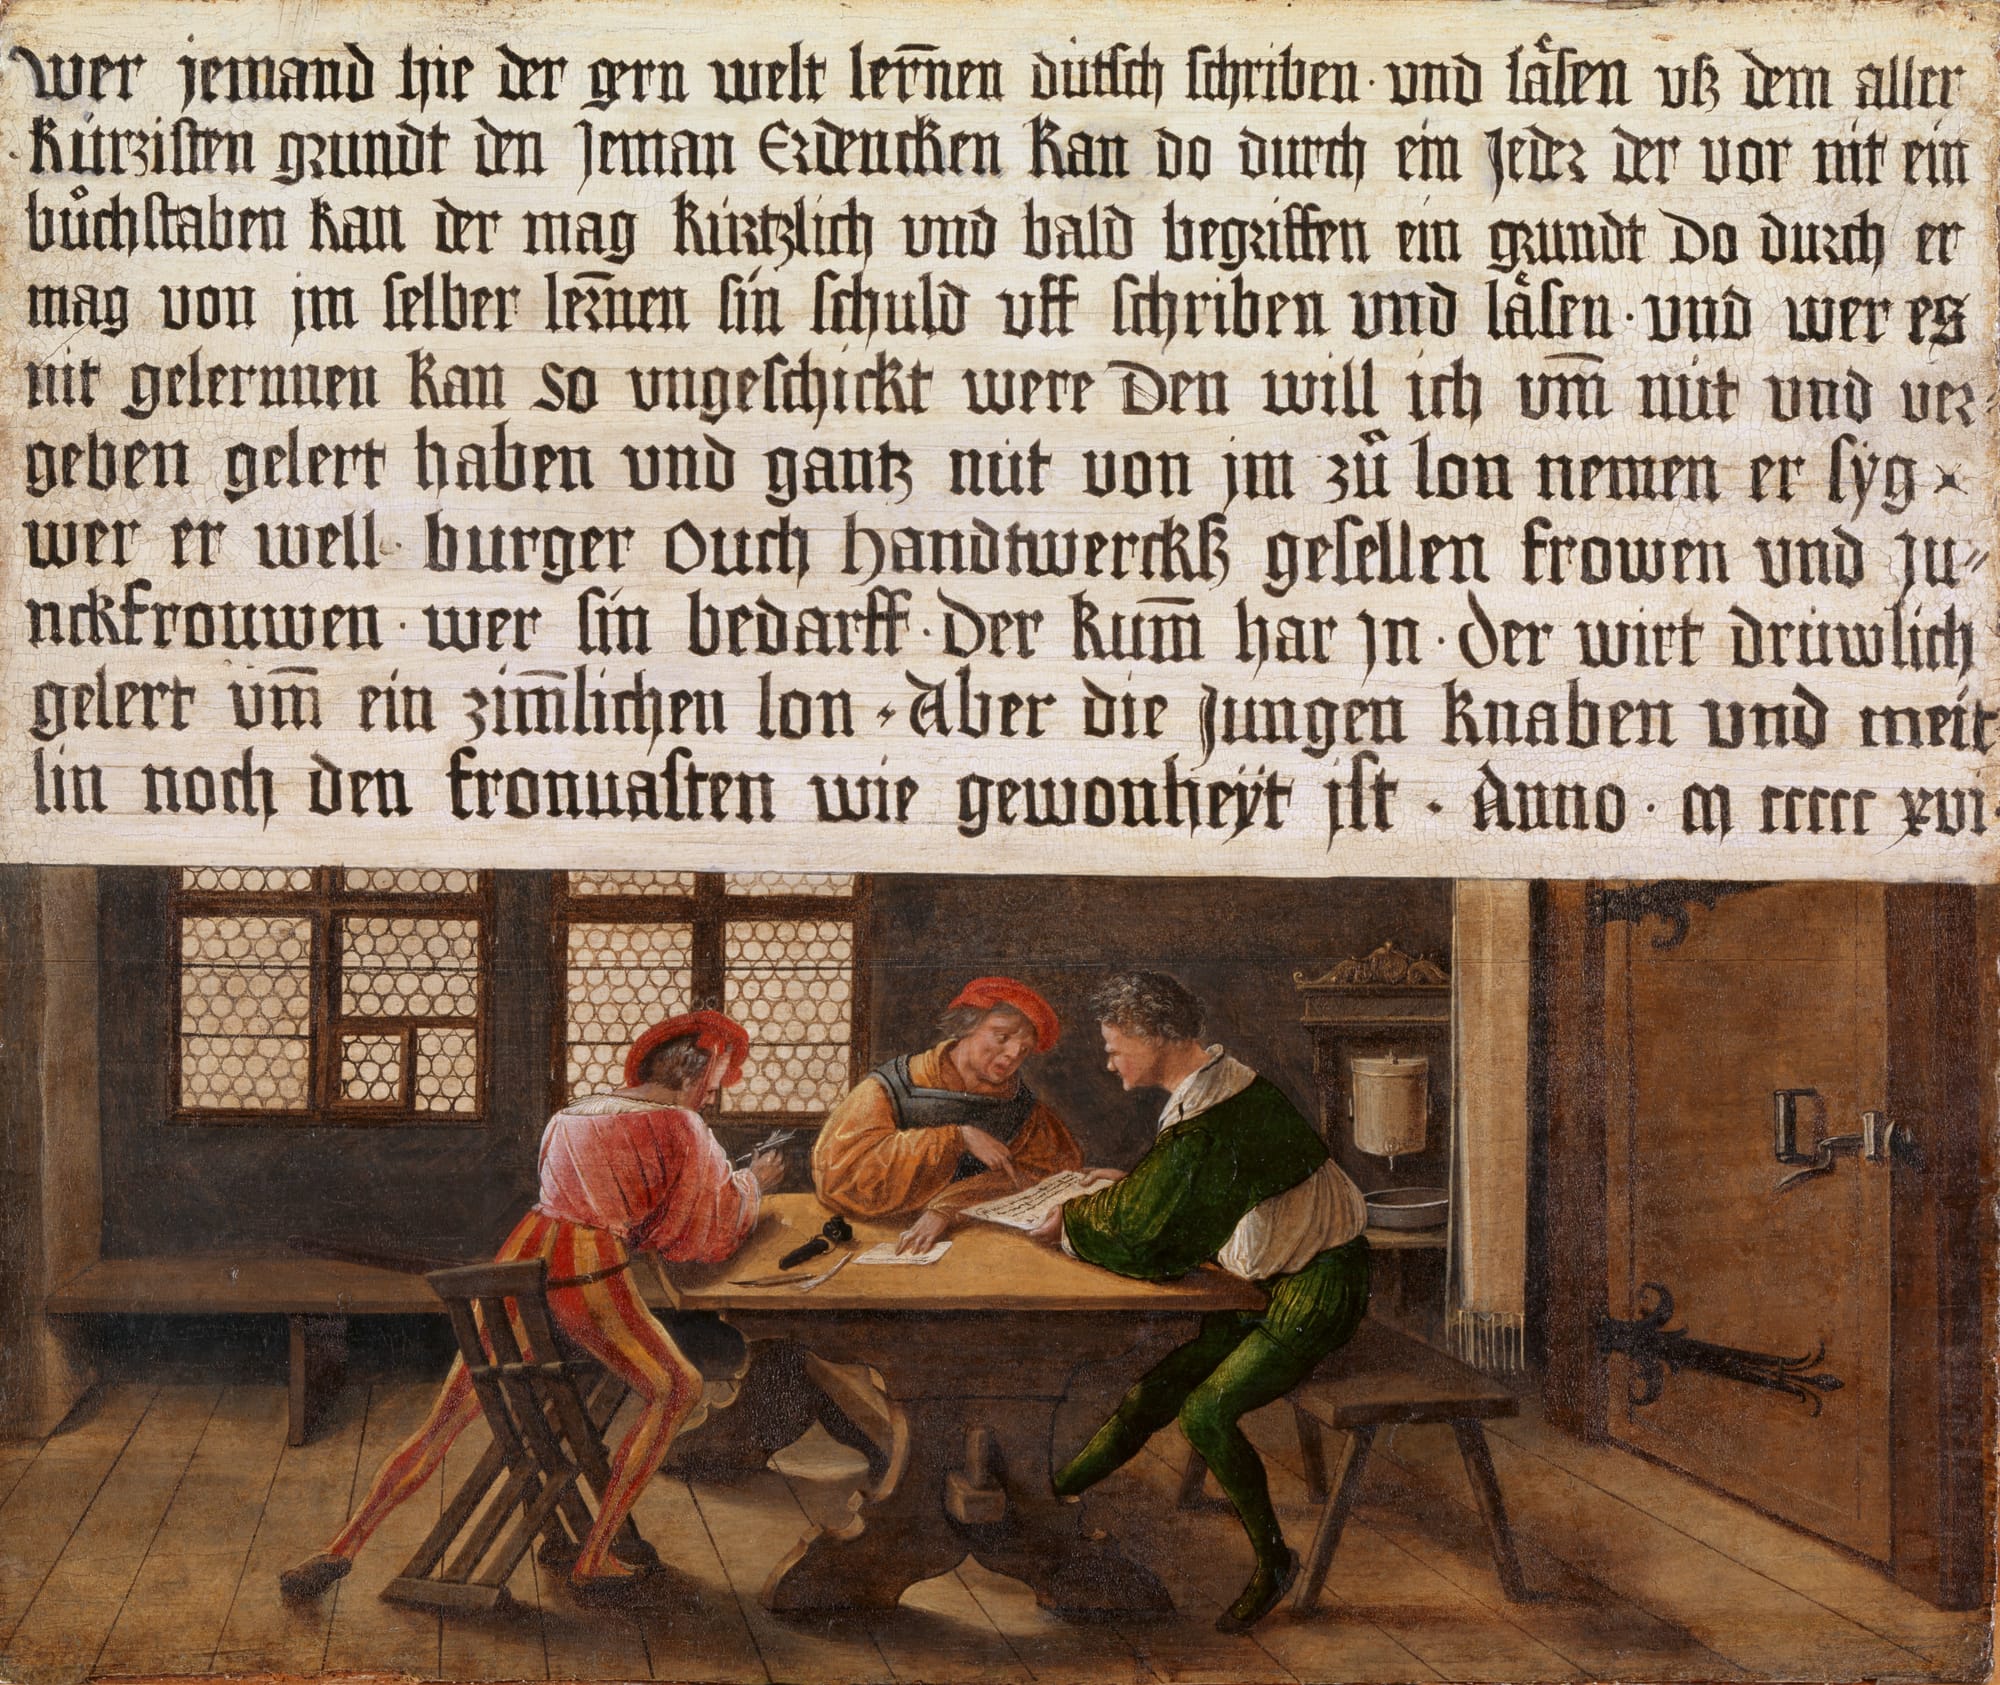 wer jemand hie der gern welt ler̅nen dütsch schriben · vnd låͤsen vß dem aller
kürzisten grundt den Jeman Erdencken kan do durch ein Jeder der vor nit ein
bůchstaben kan der mag kürtzlich vnd bald begriffen ein grundt Do durch er
mag von jm selber ler̅nen sin schuld vff schriben vnd låͤsen · vnd wer es
nit gelernnen kan so vngeschickt were Den will ich vm̅ nüt vnd ver⸗
geben gelert haben vnd gantz nüt von jm zů lon nemen er syg
wer er well · burger ouch handtwerckß gesellen frowen vnd ju⸗
nckfrouwen · wer sin bedarff · Der kum̅ har jn · der wirt drüwlich
gelert vm̅ ein zim̅lichen lon · Aber die jungen knaben vnd meit
lin noch den fronuasten wie gewonheÿt jst · Anno · m ccccc xvi ·